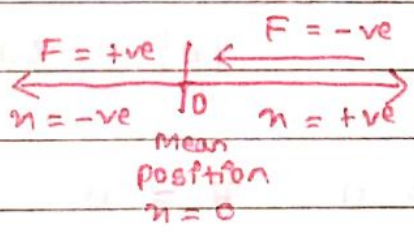 F = +ve
F = -ve
x = -ve
0
x = +ve
Mean
position
x = 0